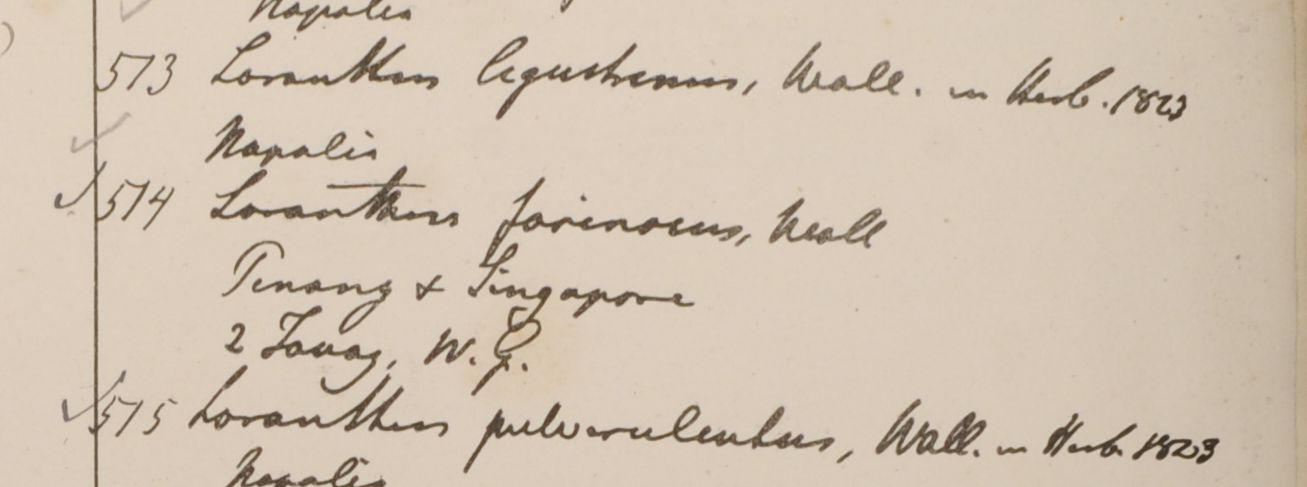 Napalia
513 Loranthus ligustrinus, Wall. in Herb. 1823
Napalia
514 Loranthus farinosus, Wall
Penang & Singapore
2 Tavoy, W. G.
515 Loranthus pulverulentus, Wall. in Herb. 1823
Napalia